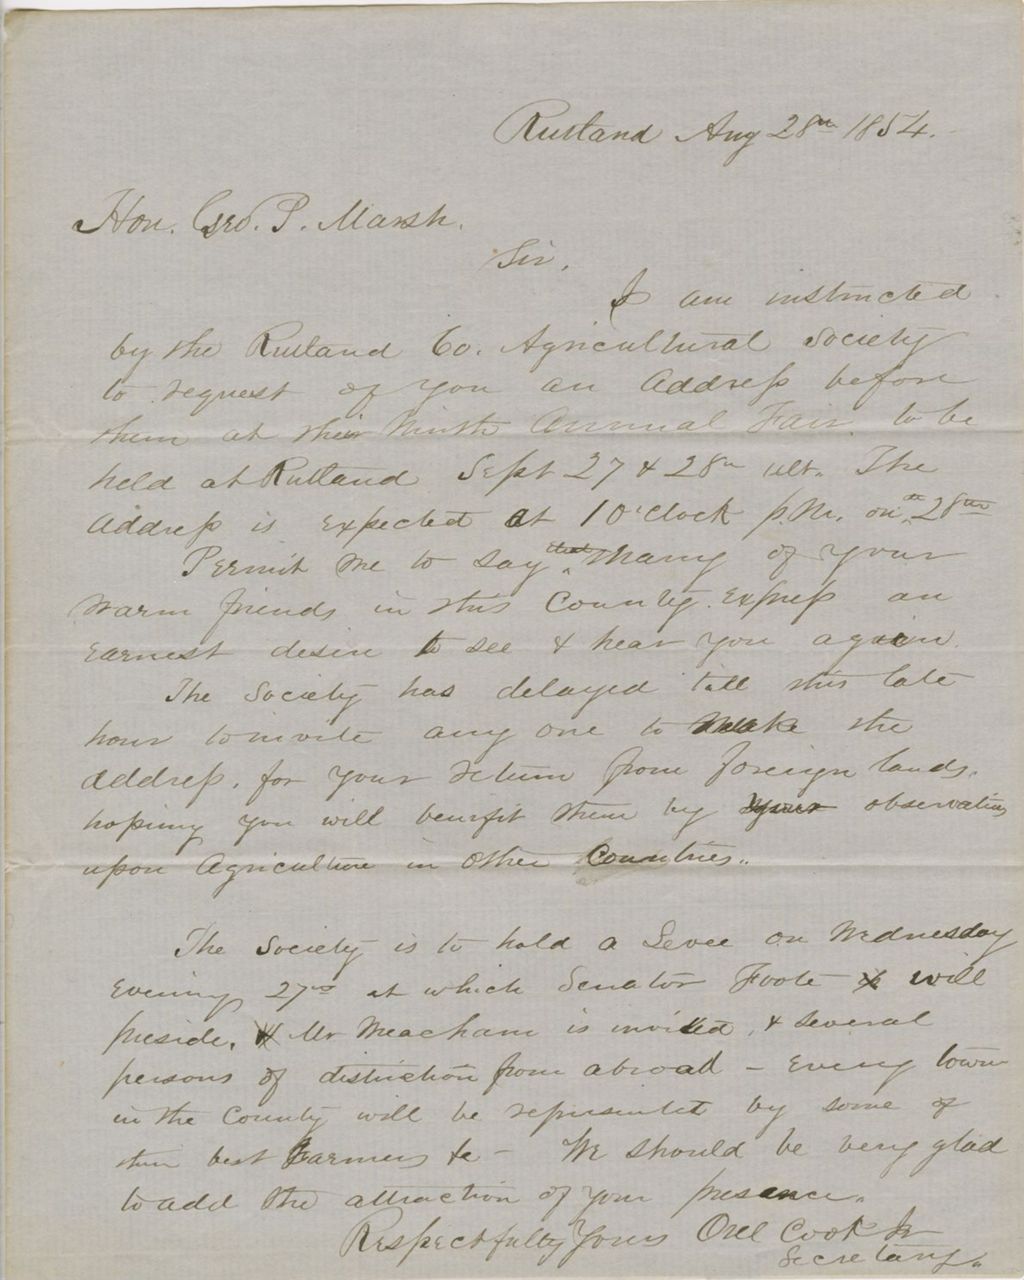 Rutland Aug 28th 1854.
Hon. Geo. P. Marsh.
Sir,
I am instructed
by the Rutland Co. Agricultural Society
to request of you an Address before
them at their Ninth Annual Fair to be
held at Rutland Sept 27 & 28th ult. The
Address is expected at 1 O'clock p.m. on the 28th
Permit me to say that many of your
warm friends in this County express an
earnest desire to see & hear you again.
The Society has delayed till this late
hour to invite any one to make the
address, for your return from foreign lands,
hoping you will benefit them by your observations
upon Agriculture in other Countries.
The Society is to hold a Levee on Wednesday
Evening 27th at which Senator Foote will
preside. Mr Meacham is invited, & several
persons of distinction from abroad - Every town
in the County will be represented by some of
their best Farmers &c - We should be very glad
to add the attraction of your presence.
Respectfully Yours Cook Jr
Secretary.